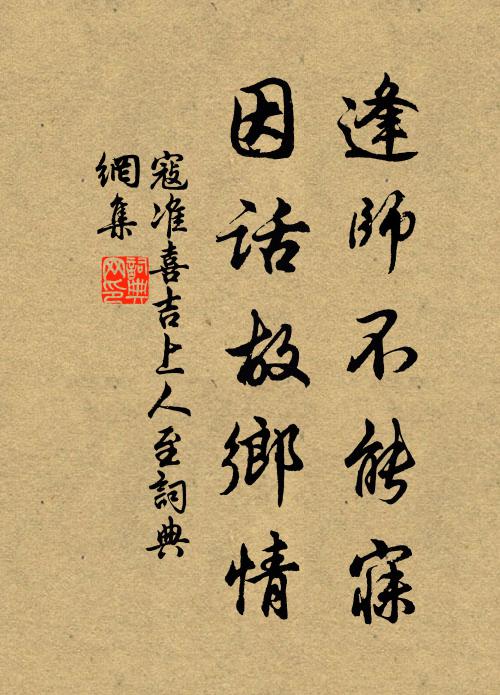 逢師不能寐
因話故鄉情
寇准喜吉上人至詞典
網集
詞典网印